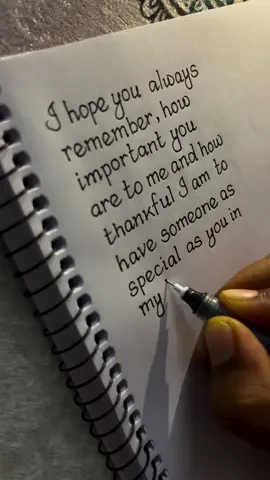 I hope you always
remember, how
important you
are to me and how
thankful I am to
have someone as
special as you in
my